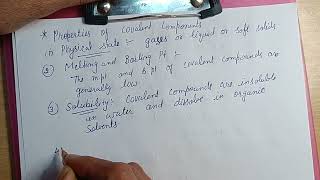 * Properties of Covalent Components
(1) Physical state :- gases or liquid or soft solids
(2) Melting and Boiling Pt :-
The m.pt and b.pt of covalent compounds are
generally low.
(3) Solubility:- Covalent compounds are insoluble
in water and dissolve in organic
Solvents